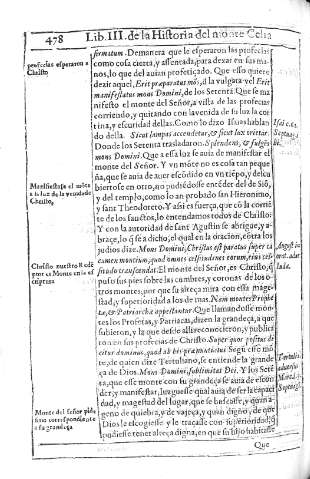 478 Lib.III. de la Historia del monte Celia
firmatum. Demanera que le esperaron las profecias
como cosa cierta, y assentada, para dexar en sus ma-
nos, lo que del auian profetiçado. Que esso quiere
dezir aqui, Erit præparatus mõs, ò la vulgata vel Erit
manifestatus mons Domini, de los Setenta. Que se ma
nifesto el monte del Señor, a vista de las profecias
corriendo, y quitando con la venida de su luz la cor
tina, y escuridad dellas. Como lo dixo Isaias hablan
do della. Sicut lampas accendetur, & sicut lux
Donde los Setenta trasladaron. Splendens, &
mons Domini. Que a essa luz se auia de manifestar el
monte del Señor. Y vn mõte no es cosa tan peque
ña, que se auia de auer escõdido en vn tiẽpo, y descu
bierto se en otro, no pudiẽdose encõder del de Siõ,
y del templo, como lo an probado san Hieronimo,
y san Theodoreto. Y assi es fuerça, que cõ la corriẽ
te de los santos, lo entendamos todos de Christo.
Y con la autoridad de sant Agustin se abrigue, y a-
brace, lo q̃ se a dicho, el qual en la oracion, cõtra los
judios dize. Mons Domini, Christus est paratus super ca
cumen montium, quod omnes celsitudines eorum, eius cel-
situdo transcendat. El monte del Señor, es Christo, q̃
puso sus pies sobre las cumbres, y coronas de los o-
tros montes, por que su alteça mira con essa mage-
stad, y superioridad a los de mas. Nam montes Prophe
tæ, & Patriarchæ appellantur. Que llamandosse mon-
tes los Profetas, y Patriarcas, dizen la grandeça, a que
subieron, y la que desde alli reconocieron, y publica
ron en sus profecias de Christo. Super quo
 dominus, quod ab his præmuntius Segũ este mõ
te, de quien dize Tertuliano, se entiende la grande
ça de Dios. Mons Domini, sublimitas Dei. Y los Setẽ
ta, que esse monte con su grandeça se auia de escon-
der, y manifestar, luego esse qual auia de ser la capaci
dad, y magestad del lugar, que se buscasse, y quan a-
geno de quiebra, y de vajeça, y quan digno, de que
Dios le escogiesse y le traçasse con superioridad, q̃
pudiesse tener alteça digna, en que su hijo habitasse
Que
profecias esperaron a
Christo
Manifestase el mõte
a la luz de la venida de
Christo,
Christo nuestro Redẽ
ptor es Monte en la es
criptura
Monte del Señor pide
sitio correspondiente
a su grandeça
Isai c. 62
Septuag.
August. in
orat. adu.
Iudæ.
Tertulia.
aduersus
Septuag.